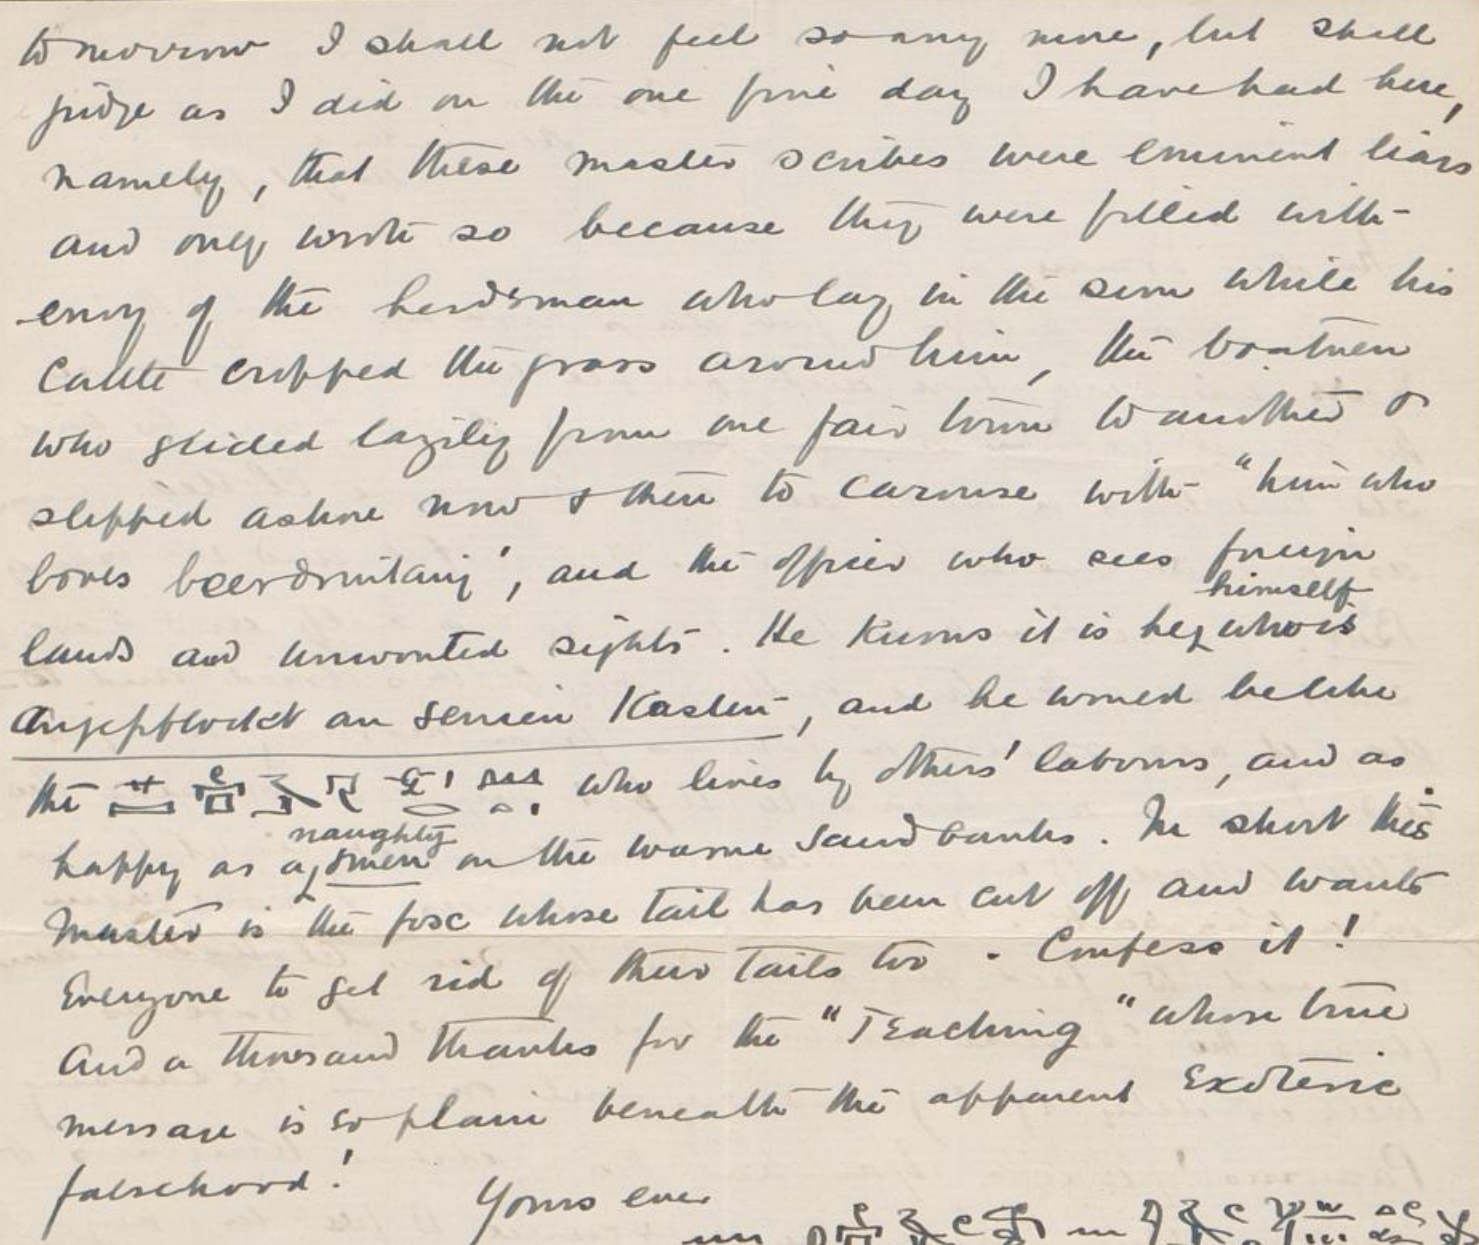 tomorrow I shall not feel so any more, but shall
judge as I did on the one fine day I have had here,
namely, that these master scribes were eminent liars
and only wrote so because they were filled with
envy of the herdsman who lay in the sun while his
cattle cropped the grass around him, the boatmen
who glided lazily from one fair town to another &
slipped ashore now & then to carouse with "him who
bores beerdrinking", and the officer who sees foreign
lands and unwonted sights. He knows it is he himself who is
angepflockt an seinen Kasten, and he would be like
the who lives by others' labours, and as
happy as a naughty on the warm sandbanks. In short this
Master is the fox whose tail has been cut off and wants
Everyone to get rid of their tails too. Confess it!
And a thousand thanks for the "Teaching" whose true
message is so plain beneath the apparent Exoteric
falsehood!
Yours ever